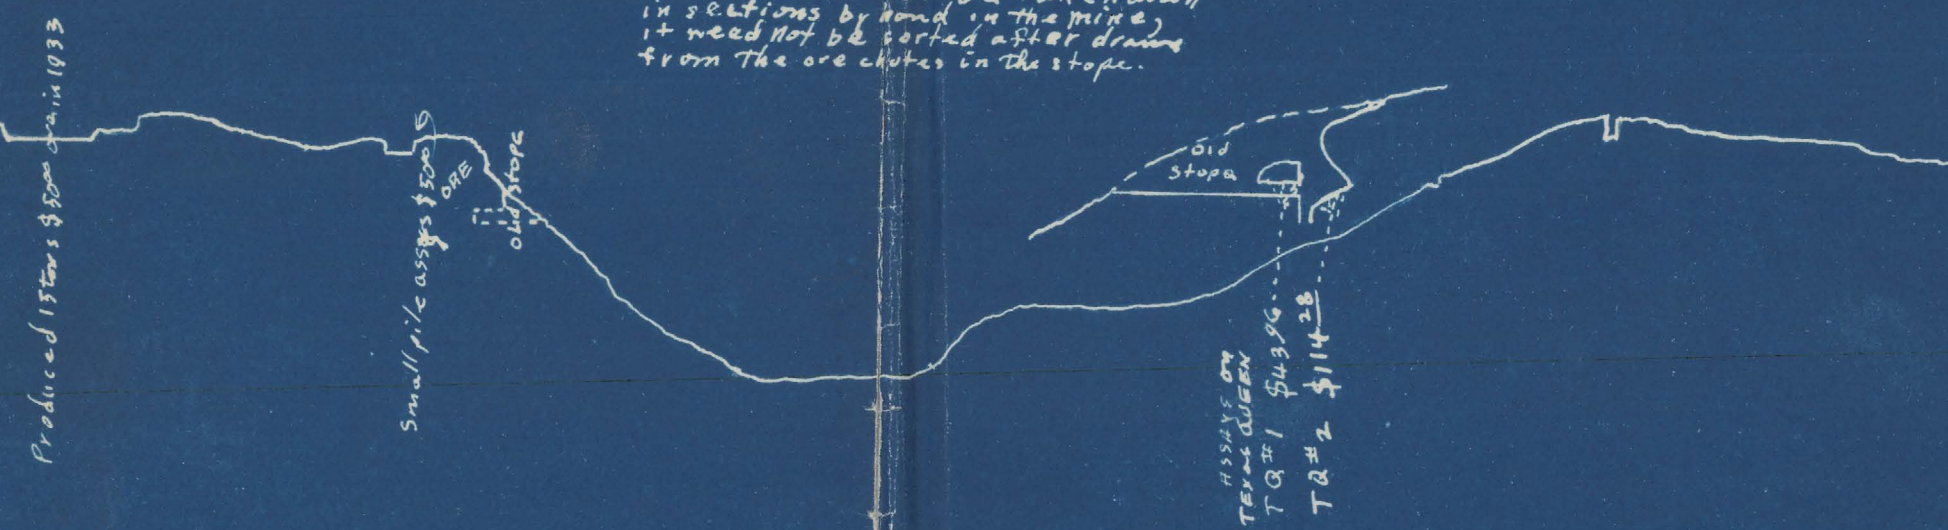 in sections by hand in the mine,
it need not be sorted after drawn
from the ore chutes in the stope.
Produced 15 tons $5000 ora in 1933
Small pile assays $500
ORE
Old stope
Old
stope
ASSAYS ON
TEXAS QUEEN
TQ#1 $4396
TQ#2 $11428